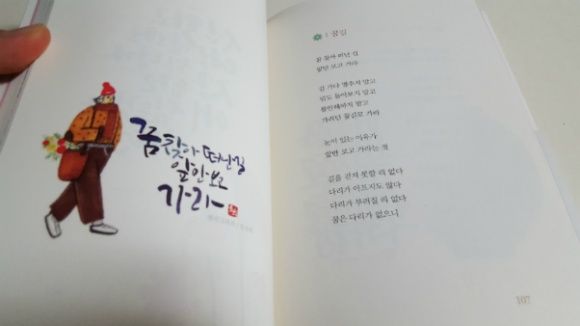 꿈찾아 떠난길
앞만보고
가라
: 꿈길
꿈 찾아 떠난 길
앞만 보고 가라
길 가다 멈추지 말고
뒤도 돌아보지 말고
불안해하지 말고
가려던 꿈길로 가라
눈이 있는 이유가
앞만 보고 가라는 것
길을 걷지 못할 리 없다
다리가 아프지도 않다
다리가 부러질 리 없다
꿈은 다리가 없으니
107